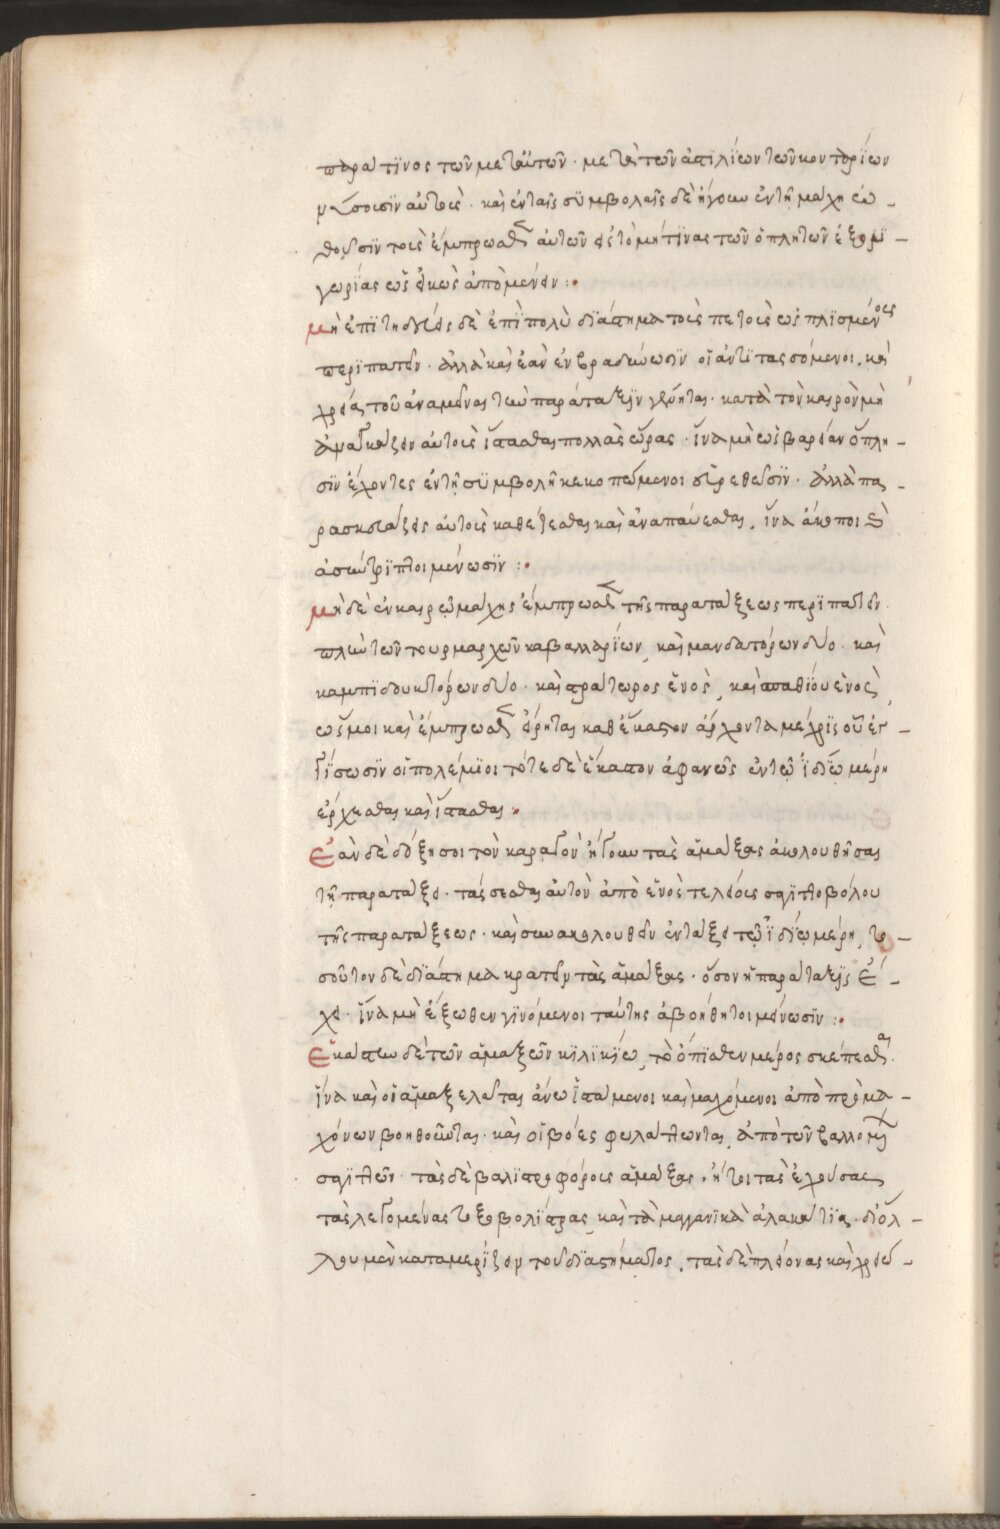 παρά τινος τῶν μετ' αὐτῶν · μετὰ τῶν ἀπιλίων τῶν κονταρίων
νύσσουσιν αὐτούς · καὶ ἐν ταῖς συμβολαῖς δὲ ἤγουν ἐν τῇ μάχῃ ἐῶ -
τοὺς ἔμπροσθεν αὐτῶν διὰ τὸ μή τινας τῶν ὁπλιτῶν ἐξ ὀλι -
γωρίας ὡς εἰκὸς ἀπομένειν :·
μὴ ἐπιτηδεύεις δὲ ἐπὶ πολὺ διάστημα τοὺς πεζοὺς ὡπλισμένους
περιπατεῖν · ἀλλὰ καὶ ἐὰν ἐν βραδύνωσιν οἱ ἀντιτασσόμενοι, καὶ
χρεία τοῦ ἀναμεῖναι τὴν παράταξιν γένηται · κατὰ τὸν καιρὸν μὴ
ἀναγκάζειν αὐτοὺς ἵστασθαι πολλὰς ὥρας · ἵνα μὴ ὡς βαρεῖαν ὅπλη -
σιν ἔχοντες ἐν τῇ συμβολῇ κεκοπωμένοι εὑρεθῶσιν · ἀλλὰ πα -
ρασκευάζεις αὐτοὺς καθέζεσθαι καὶ ἀναπαύεσθαι, ἵνα ἄκοποι καὶ
ἀσύντριπτοι μένωσιν :·
μὴ δὲ ἐν καιρῷ μάχης ἔμπροσθεν τῆς παρατάξεως περιπατεῖν ·
πλὴν τῶν τουρμαρχῶν καβαλλαρίων, καὶ μανδατόρων δύο · καὶ
καμπιδουκτόρων δύο · καὶ στράτωρος ἑνὸς, καὶ σπαθίου ἑνὸς,
ὥς μοι καὶ ἔμπροσθεν εἴρηται καθ' ἕκαστον ἄρχοντα μέχρις οὗ ἐγ -
γίσωσιν οἱ πολέμιοι τότε δὲ ἕκαστον ἀφανῶς ἐν τῷ ἰδίῳ μέρη
ἔρχεσθαι καὶ ἵστασθαι ·
Ἐὰν δὲ δόξῃ σοι τὸν καραγὸν ἤγουν τὰς ἁμάξας ἀκολουθῆσαι
τῇ παρατάξει · τάσσεσθαι αὐτὸν ἀπὸ ἑνὸς τελείους σαγιττοβόλου
τῆς παρατάξεως · καὶ συνακολουθεῖν ἐν τάξει τῷ ἰδίῳ μέρη, το -
σοῦτον δὲ διάστημα κρατεῖν τὰς ἁμάξας · ὅσον ἡ παράταξις ἔ -
χει · ἵνα μὴ ἔξωθεν γινόμενοι ταύτης ἀβοήθητοι μένωσιν :·
Ἑκάστην δὲ τῶν ἁμαξῶν κιλικίῳ, τὸ ὄπισθεν μέρος σκέπεσθαι ·
ἵνα καὶ οἱ ἁμαξελάται ἄνω ἱστάμενοι καὶ μαχόμενοι ἀπὸ προμα -
χόνων βοηθοῦνται · καὶ οἱ βόες φυλάττωνται, ἀπὸ τῶν βαλλομένων
σαγιττῶν · τὰς δὲ βαλιστροφόρους ἁμάξας · ἤτοι τὰς ἐχούσας
τὰς λεγομένας τοξοβολίστρας, καὶ τὰ μαγγανικὰ ἀλακάτια · δι' ὅλ -
λου μὲν καταμερίζειν τοῦ διαστήματος, τὰς δὲ πλείονας καὶ χρειώ -